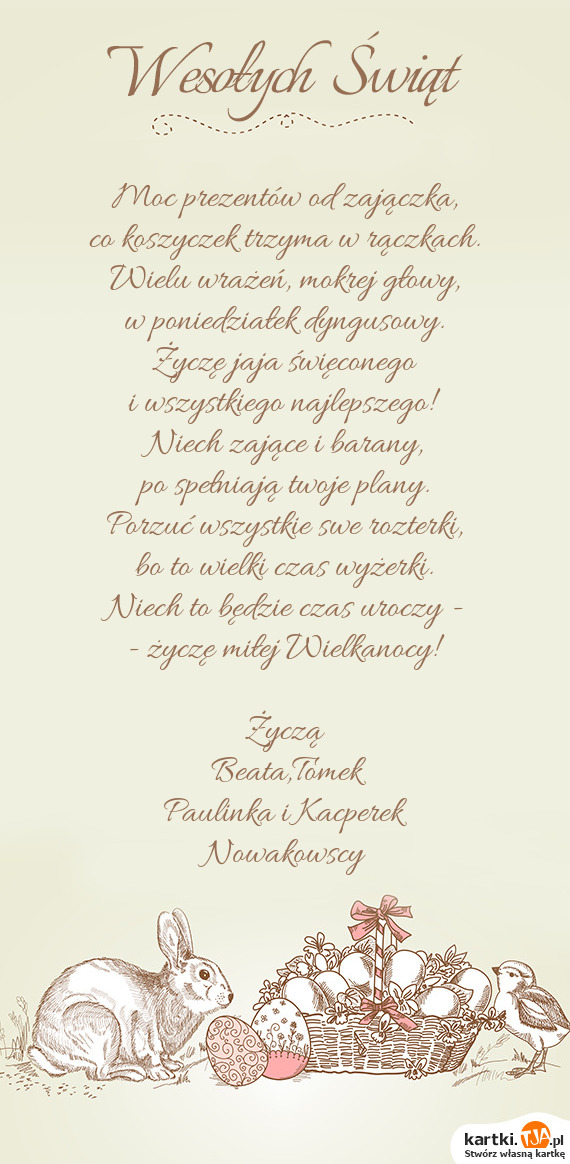 Wesołych Świąt
Moc prezentów od zajączka,
co koszyczek trzyma w rączkach.
Wielu wrażeń, mokrej głowy,
w poniedziałek dyngusowy.
Życzę jaja święconego
i wszystkiego najlepszego!
Niech zające i barany,
po spełniają twoje plany.
Porzuć wszystkie swe rozterki,
bo to wielki czas wyżerki.
Niech to będzie czas uroczy -
- życzę miłej Wielkanocy!
Życzą
Beata,Tomek
Paulinka i Kacperek
Nowakowscy
kartki.TJA.pl
Stwórz własną kartkę